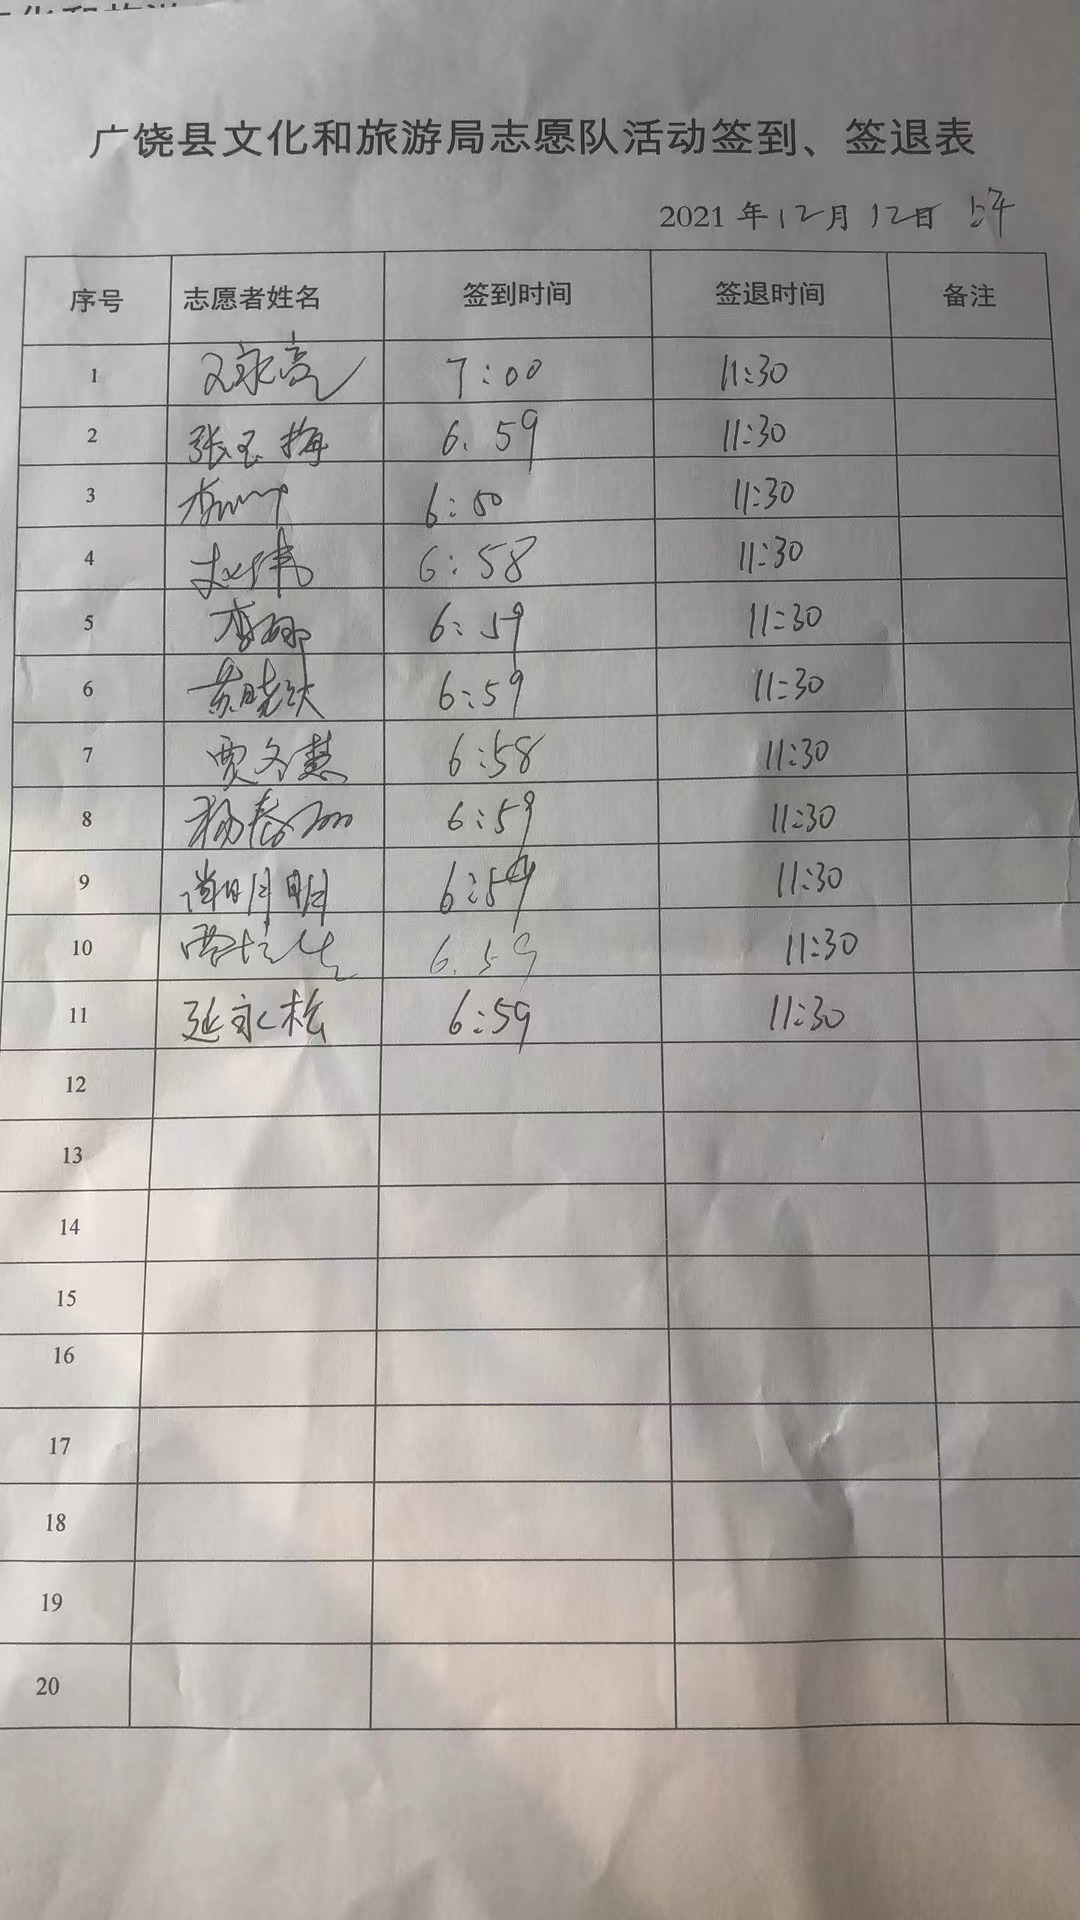 广饶县文化和旅游局志愿队活动签到、签退表
2021 年 12月 12日 上午
序号 志愿者姓名 签到时间 签退时间 备注
1 永亮 7:00 11:30
2 张玉梅 6.59 11:30
3 李 6:50 11:30
4 赵伟 6:58 11:30
5 李娜 6:59 11:30
6 黄晓 6:59 11:30
7 贾冬慧 6:58 11:30
8 杨春 6:59 11:30
9 明明 6:59 11:30
10 6.59 11:30
11 延永松 6:59 11:30
12
13
14
15
16
17
18
19
20